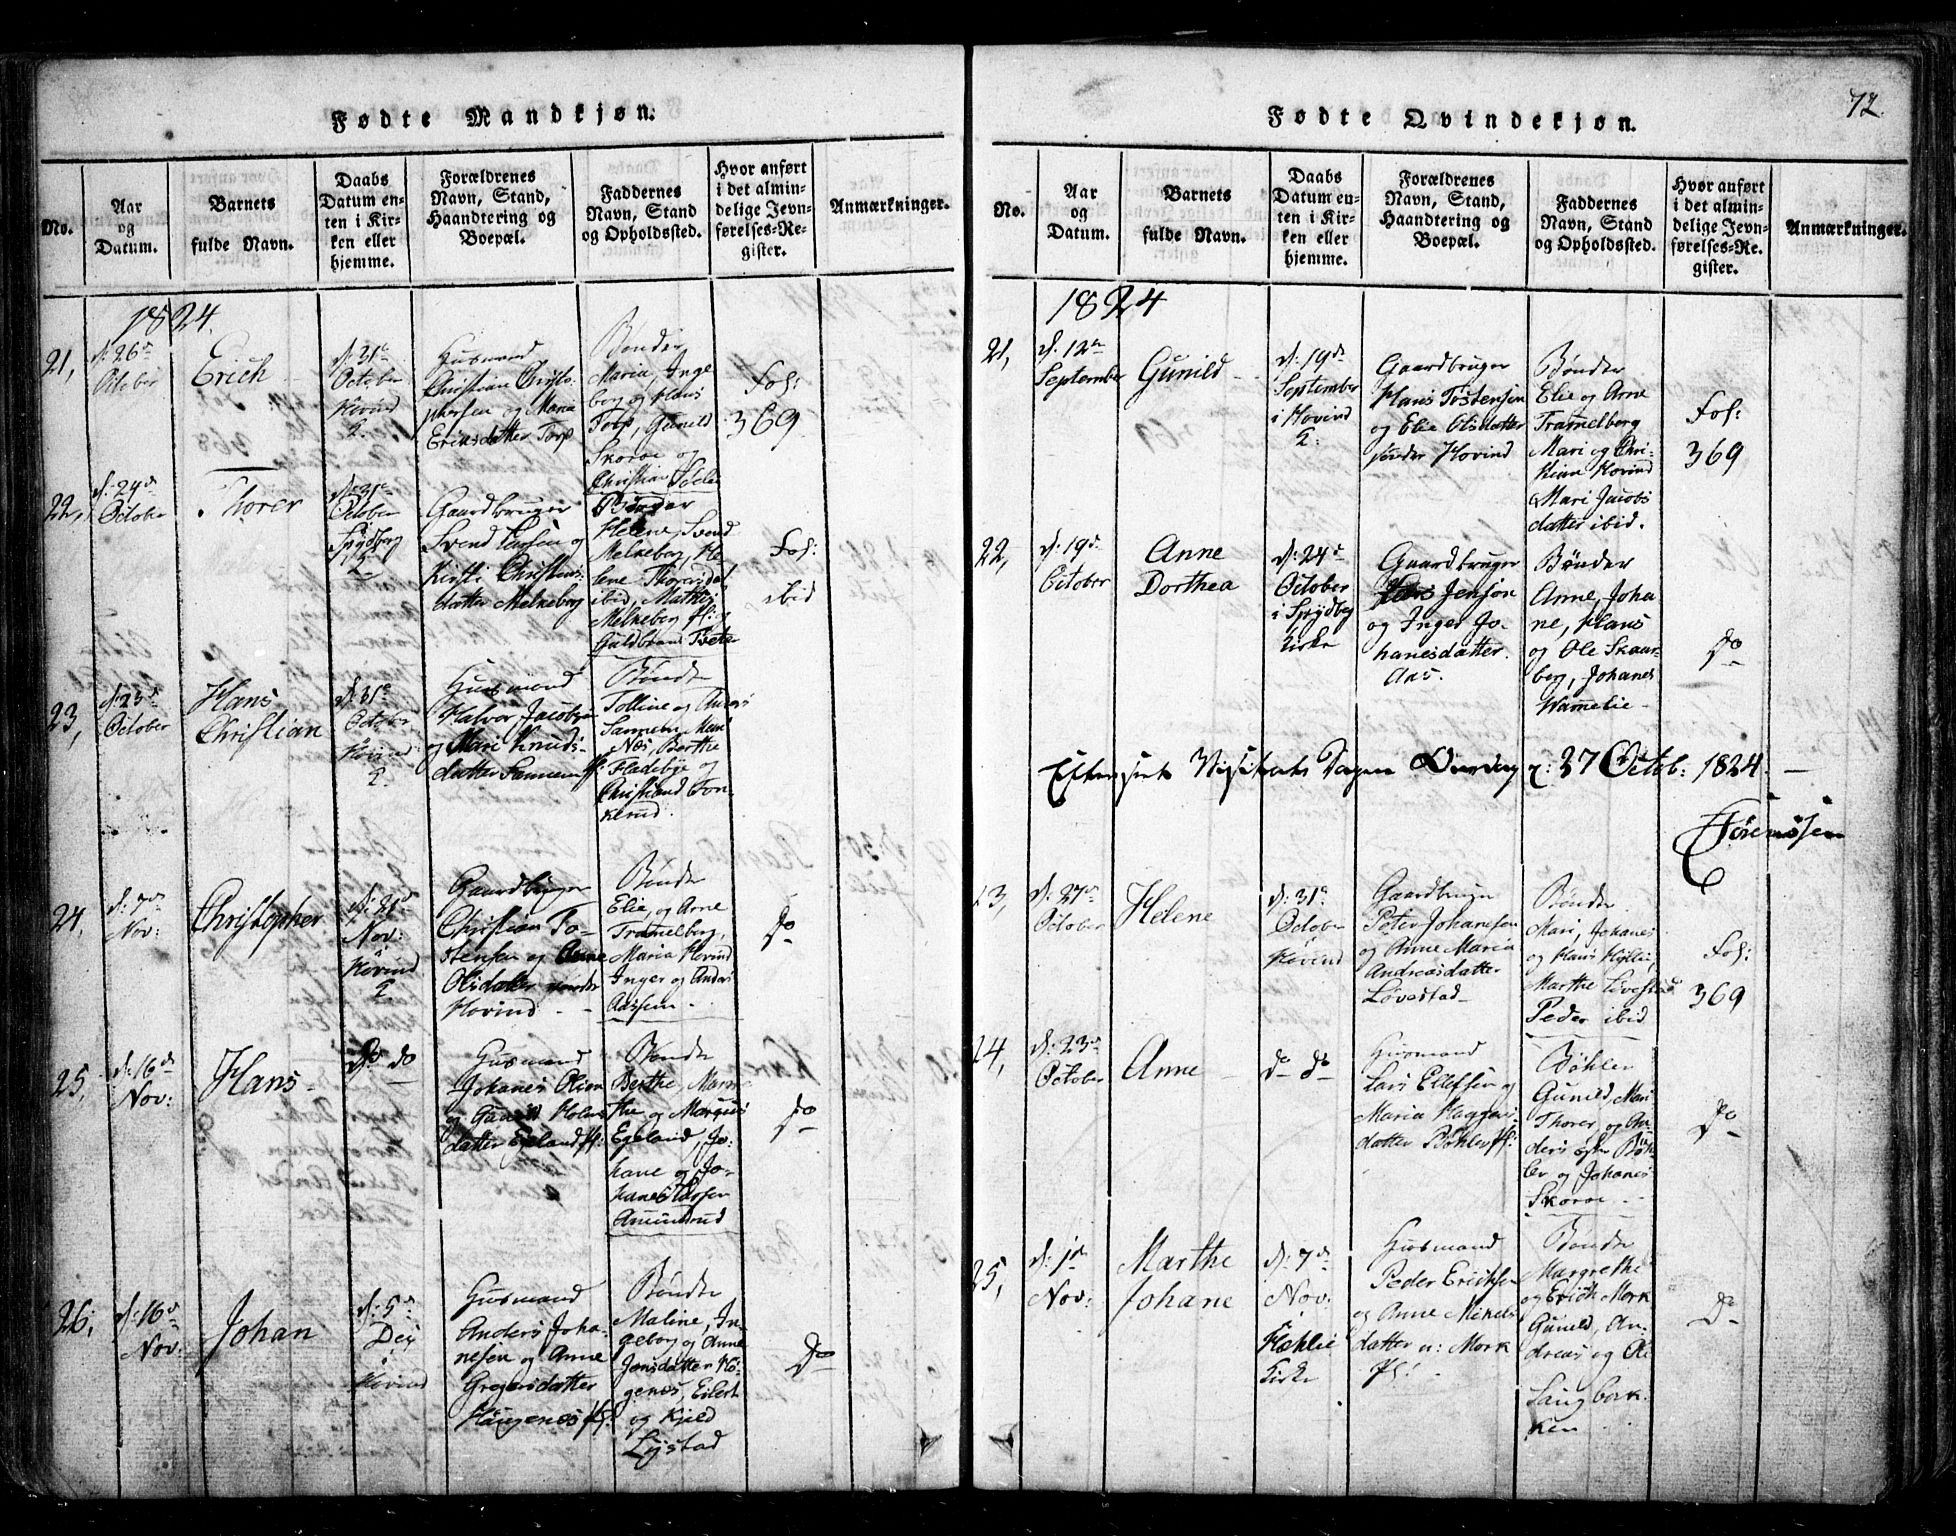 Fødte Mandkjøn.
No.
Aar
og
Datum.
Barnets
fulde Navn.
Daabs
Datum en-
ten i Kir-
ken eller
hjemme.
Forældrenes
Navn, Stand,
Haandtering og
Boepæl.
Faddernes
Navn, Stand
og Opholdssted.
Hvor anført
i det almin-
delige Jevn-
førelses-Re-
gister.
Anmærkninger.
1824.
21,
d: 26de
October
Erich
d: 31te
October
Hovind
K:
Huusmand
Christian Christo-
phersen og Maria
Ericsdatter Torp
Bønder
Maria, Inge
borg og Hans
Torp, Gunild
Skoroe og
Christian
Fol:
369
22,
d: 24de
October
Thorer
d: 31te
October
Spydberg
K:
Gaardbruger
Svend Larsen og
Kirsti Christens-
datter Melneberg
Bønder
Helene, Svend
Melneberg, He
lene Thorersdat
ibid, Mathis
Melneberg Pl:
Guldbrand Tvete
Fol:
ibid
23,
d: 23de
October
Hans
Christian
d: 31te
October
Hovind
K:
Huusmand
Halvor Jacobsen
og Mari Knuds-
datter Sannem Pl:
Bønder
Tolline og Anders
Sannem
Næs, Berthe
Fladebye og
Christiand Ton-
kerud.
24,
d: 7de
Nov:
Christopher
d: 21de
Nov:
Hovind
K:
Gaardbruger
Christian To-
stensen og Anne
Olsdatter nordre
Hovind
Bønder
Elie, og Arne
Tramelborg,
Maria Hovind
Inger og Anders
Aassem
Do
25,
d: 16de
Nov:
Hans
Do do
Huusmand
Johanes Olsen
og Gunild Holm
datter Egeland Pl:
Bønder
Berthe, Mar
the og Margus
Egeland, Jo-
hane og Jo-
hanes Larsen
Amundrud
Do
26,
d: 16de
Nov:
Johan
d: 5te
Dec
Hovind
Huusmand
Anders Joha-
nesen og Anne
Gregersdatter
Haugenes Pl:
Bønder
Maline, In-
geborg og Anne
Jensdatter Hø-
genes, Eilert
og Kjeld
Lystad
Do
72.
Fødte Qvindekjøn.
No.
Aar
og
Datum.
Barnets
fulde Navn.
Daabs
Datum en-
ten i Kir-
ken eller
hjemme.
Forældrenes
Navn, Stand,
Haandtering og
Boepæl.
Faddernes
Navn, Stand
og Opholdssted.
Hvor anført
i det almin-
delige Jevn-
førelses-Re-
gister.
Anmærkninger.
1824
21,
d: 12te
September
Gunild
d: 19de
September
i Hovind
K:
Gaardbruger
Hans Tostensen
og Elie Olsdatter
sønder Hovind
Bønder
Elie og Arne
Tramelborg
Mari og Chri-
stian Hovind
Mari Jacobs
datter ibid.
Fol:
369
22,
d: 19de
October
Anne
Dorthea
d: 24de
October
i Spydbg
Kirke
Gaardbruger
Jensen
og Inger Jo-
hanesdatter
Aas.
Bønder
Anne, Joha
ne, Hans
og Ole Skaar-
berg, Johanes
Wamelie
Do
Efterseet Visitats Dagen Onsdag d: 27 Octob: 1824.
Sørenssen
23,
d: 27de
October
Helene
d: 31te
October
Hovind
Gaardbruger
Peter Johansen
og Anne Maria
Andreasdatter
Løvestad
Bønder
Mari, Johanes
og Hans Hyllie,
Marthe Løvestad
Peder ibid
Fol:
369
24,
d: 23de
October
Anne
do do
Huusmand
Lars Ellefsen og
Maria Haagens
datter Bøhler Pl:
Bøhler
Gunild, Mari
Thorer, og An
ders Bøh-
ler og Johanes
Skoroe
Do
25,
d: 1ste
Nov:
Marthe
Johane
d: 7de
Nov:
Hæhlie
Kirke
Huusmand
Peder Ericksen
og Anne Mikels
datter u: Mork
Pl:
Bønder
Margrethe
og Erich Mork
Gunild, An-
dreas og Ole
Langbark-
ken
Do